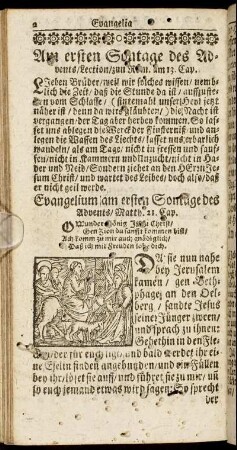 2 Evangelia
Am ersten Sontage des Ad-
vents/Lection/zun Röm. am 13. Cap.
LJeben Brüder/weil wir solches wissen/nemb-
lich die Zeit/daß die Stunde da ist/auffzuste-
hen vom Schlaffe/ (sintemahl unser Heyl jetzt
näher ist/denn da wirs gläubten/) die Nacht ist
vergangen/der Tag aber herbey kommen. So las-
set uns ablegen die Werck der Finsterniß und an-
legen die Waffen des Liechts/lasset uns erbarlich
wandeln/als am Tage/nicht in fressen und sauf-
fen/nicht in Kammern und Unzucht/nicht in Ha-
der und Neid/Sondern ziehet an den HErrn Je-
sum Christ/und wartet des Leibes/doch also/daß
er nicht geil werde.
Evangelium am ersten Sontage des
Advents/Matth. 21. Cap.
O Wunder König Jesu Christ/
Gen Zion da sanfft kommen bist/
Ach komm zu mir auch gnädiglich/
Daß ich mit Freuden lobe dich.
DA sie nun nahe
bey Jerusalem
kamen/ gen Beth-
phage/ an den Oel-
berg/ sandte Jesus
seiner Jünger zween/
und sprach zu ihnen:
Gehet hin in den Fle-
cken/der für euch ligt/und bald werdet ihr ei-
ne Eselin finden angebunden/und ein Füllen
bey ihr/löset sie auff/und führet sie zu mir/und
so euch jemand etwas wird sagen/So sprecht
der